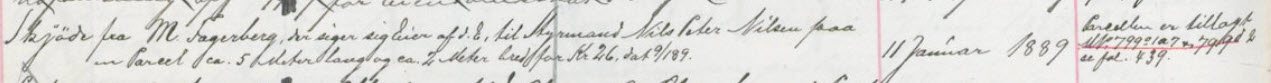 Skjøde fra M. Fagerberg, der siger sig Eier af d. E., til Styrmand Nils Peter Nilsen paa
en Parcel ca. 5 Meter lang og ca. 2 Meter bred for Kr 26, dat 9/1 89.
11 Januar 1889
Parcellen er tillagt
799
se fol. 439.